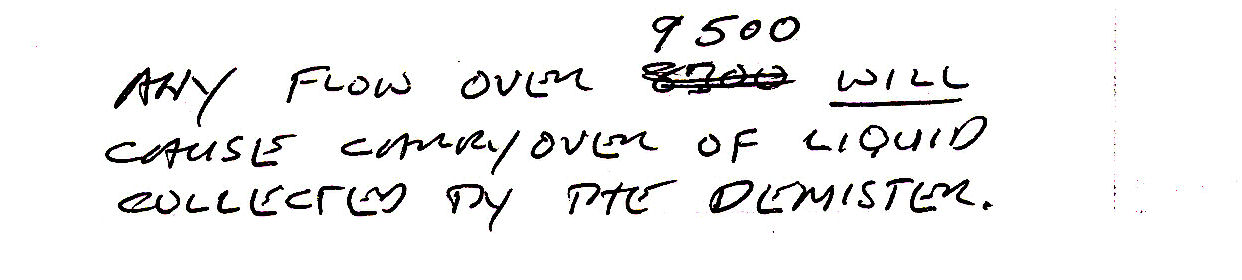 9500
ANY FLOW OVER 8700 WILL
CAUSE CARRY/OVER OF LIQUID
COLLECTED BY THE DEMISTER.